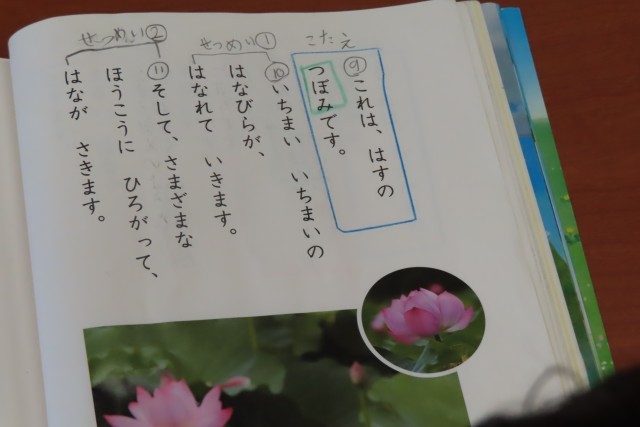 こたえ
⑨これは、はすの
つぼみです。
せつめい①
⑩いちまい いちまいの
はなびらが、
はなれて いきます。
せつめい②
⑪そして、さまざまな
ほうこうに ひろがって、
はなが さきます。